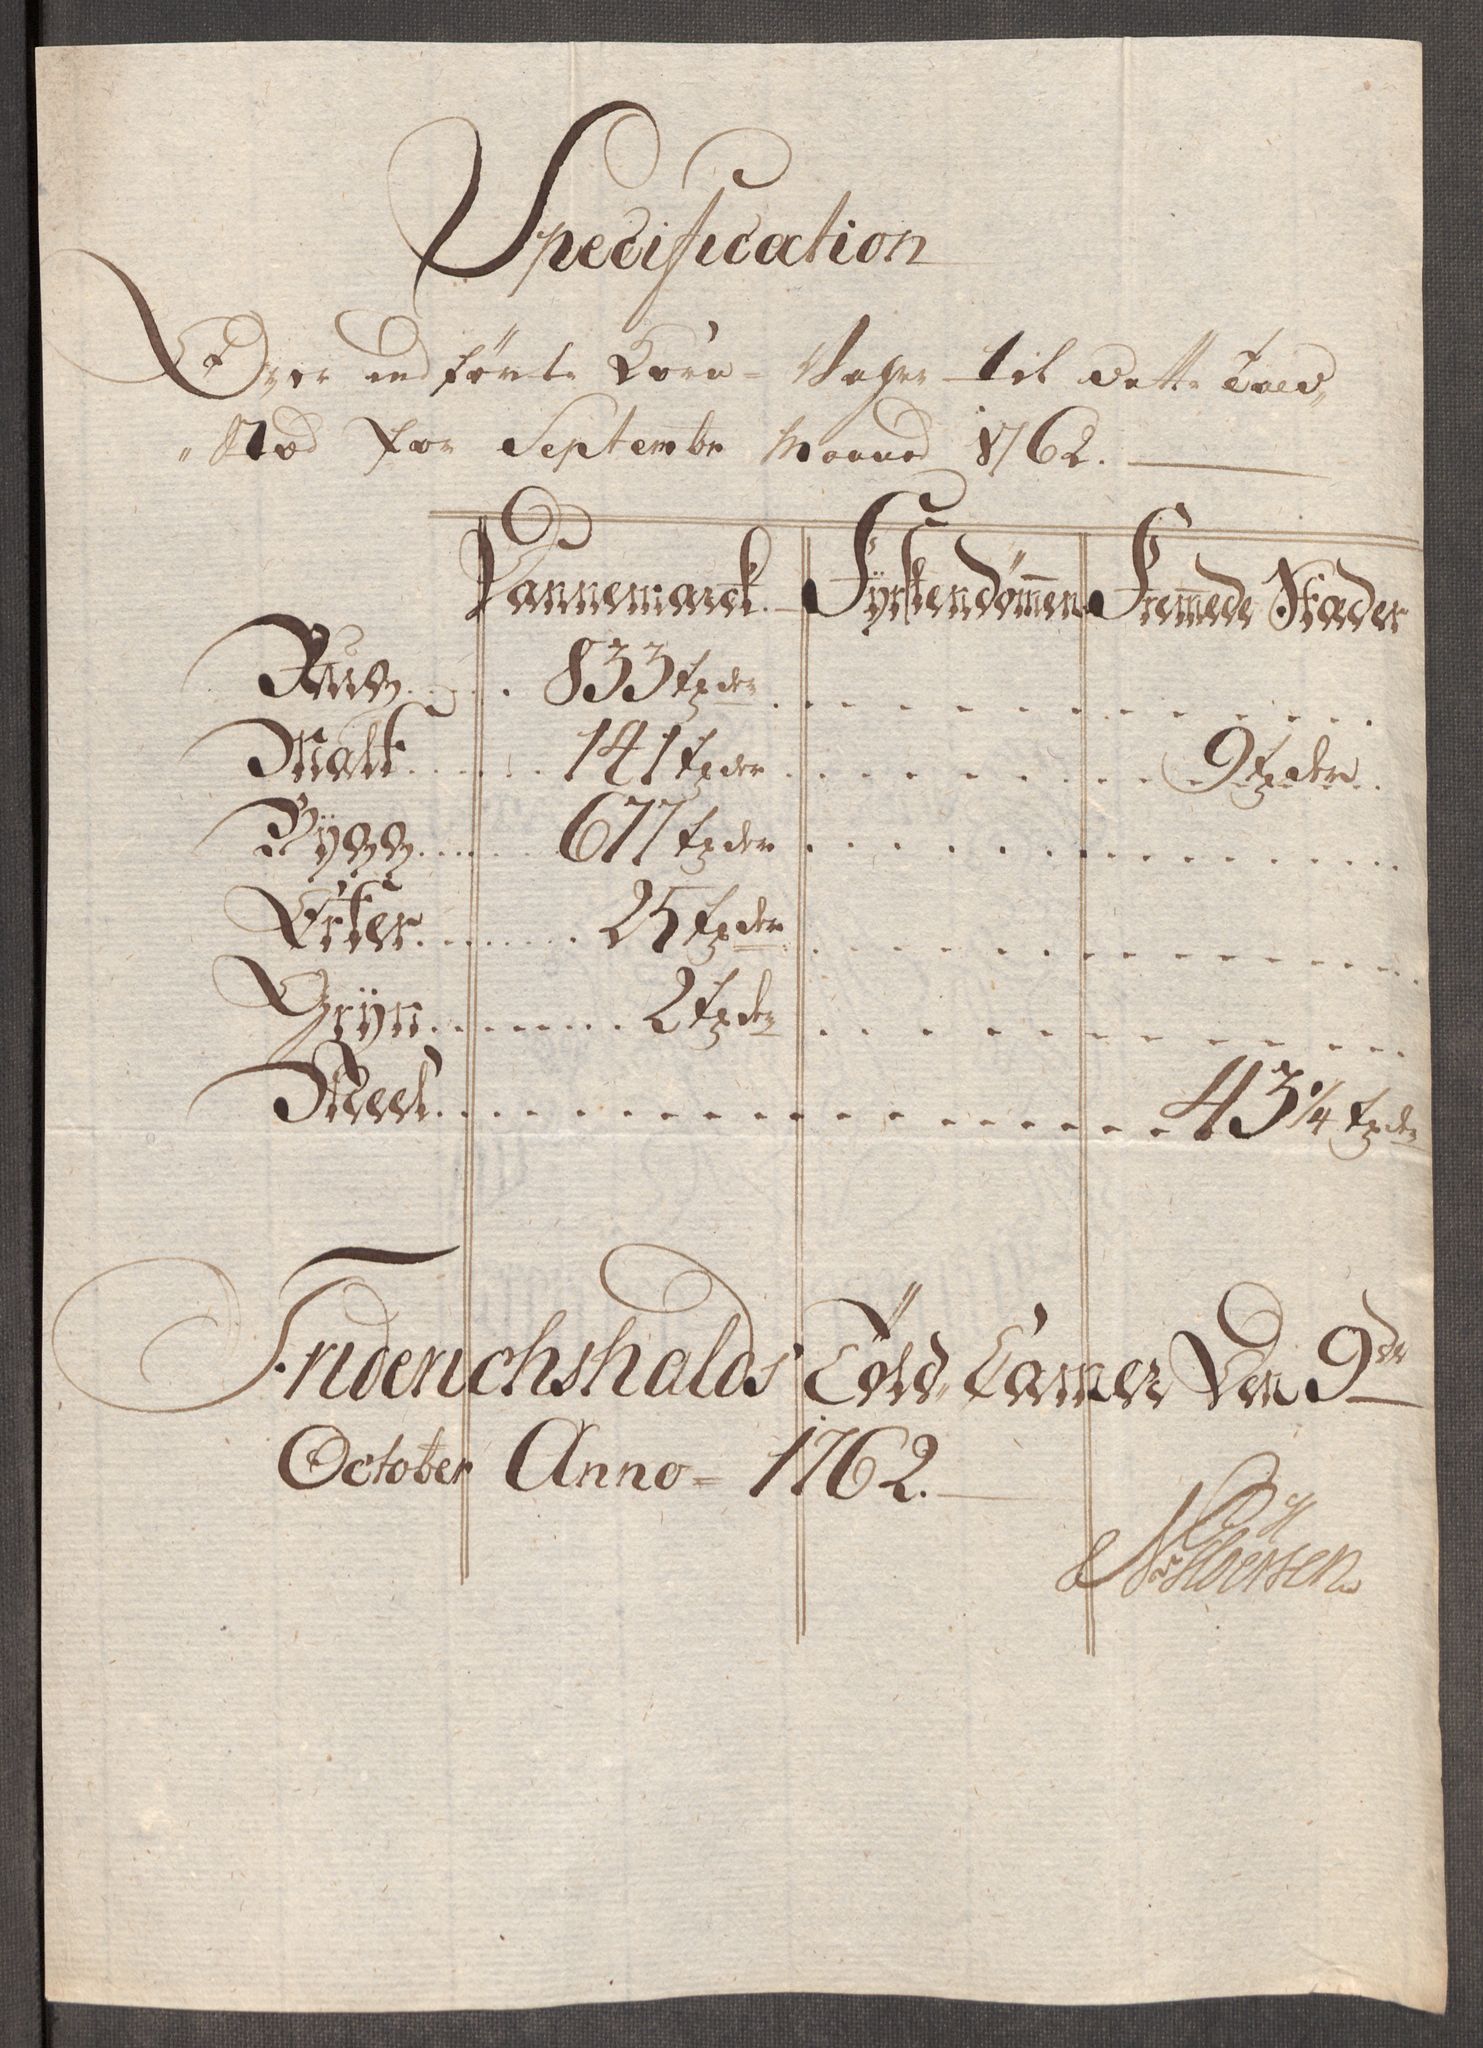 Specification
Over indførte Korn- Vahre til dette Told,,
,,Stæd for Septembr Maaned 1762.
Dannemarck. Fyrstendømen Fremede Stæder
Rug 833 tønder
Malt 141 tønder 9 tønder
Bÿgg 677 tønder
Erter 25 tønder
Grÿn 2 tønder
Meel 43 1/4 tønder
Friderichshalds Told,, Camer Den 9de
October Anno 1762.